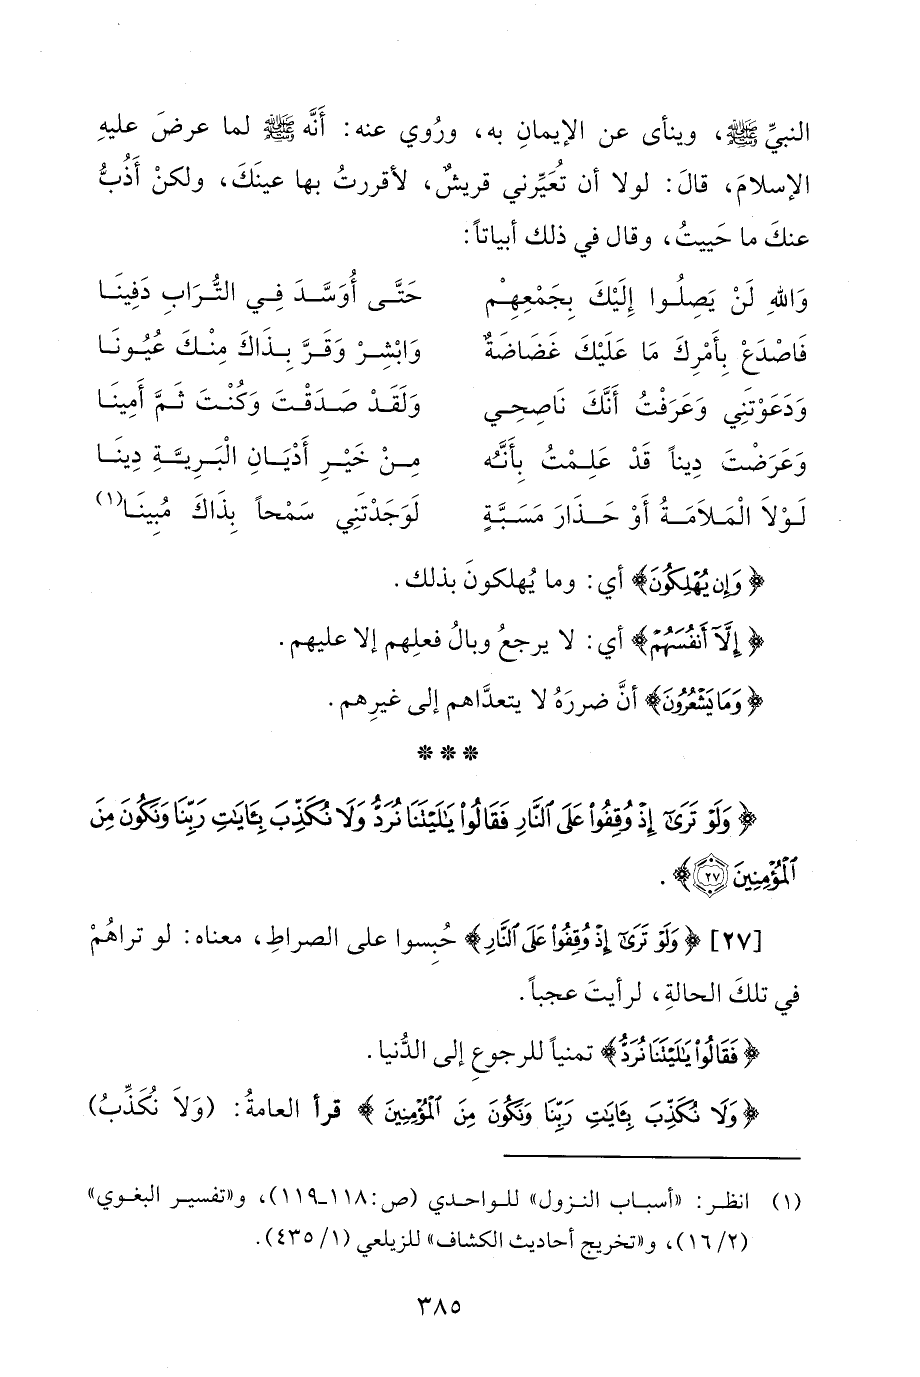 النبيِّ ﷺ، وينأى عن الإيمانِ به، ورُوي عنه: أنَّه ﷺ لما عرضَ عليهِ
الإسلامَ، قالَ: لولا أن تُعَيِّرني قريشٌ، لأقررتُ بها عينَكَ، ولكنْ أَذُبُّ
عنكَ ما حَييتُ، وقال في ذلك أبياتاً:
وَاللهِ لَنْ يَصِلُوا إِلَيْكَ بِجَمْعِهِمْ حَتَّى أُوَسَّدَ فِي التُّرَابِ دَفِينَا
فَاصْدَعْ بِأَمْرِكَ مَا عَلَيْكَ غَضَاضَةٌ وَابْشِرْ وَقَرَّ بِذَاكَ مِنْكَ عُيُونَا
وَدَعَوْتَنِي وَعَرَفْتُ أَنَّكَ نَاصِحِي وَلَقَدْ صَدَقْتَ وَكُنْتَ ثَمَّ أَمِينَا
وَعَرَضْتَ دِيناً قَدْ عَلِمْتُ بِأَنَّهُ مِنْ خَيْرِ أَدْيَانِ الْبَرِيَّةِ دِينَا
لَوْلاَ الْمَلاَمَةُ أَوْ حَذَارَ مَسَبَّةٍ لَوَجَدْتَنِي سَمْحاً بِذَاكَ مُبِينَا(١)
﴿وَإِن يُهْلِكُونَ﴾ أي: وما يُهلكونَ بذلك.
﴿إِلَّآ أَنفُسَهُمْ﴾ أي: لا يرجعُ وبالُ فعلِهم إلا عليهم.
﴿وَمَا يَشْعُرُونَ﴾ أنَّ ضررَهُ لا يتعدَّاهم إلى غيرِهم.
* * *
﴿وَلَوْ تَرَىٰٓ إِذْ وُقِفُوا۟ عَلَى ٱلنَّارِ فَقَالُوا۟ يَٰلَيْتَنَا نُرَدُّ وَلَا نُكَذِّبَ بِـَٔايَٰتِ رَبِّنَا وَنَكُونَ مِنَ
ٱلْمُؤْمِنِينَ ٢٧﴾.
[٢٧] ﴿وَلَوْ تَرَىٰٓ إِذْ وُقِفُوا۟ عَلَى ٱلنَّارِ﴾ حُبِسوا على الصراطِ، معناه: لو تراهُمْ
في تلكَ الحالةِ، لرأيتَ عجباً.
﴿فَقَالُوا۟ يَٰلَيْتَنَا نُرَدُّ﴾ تمنياً للرجوعِ إلى الدُّنيا.
﴿وَلَا نُكَذِّبَ بِـَٔايَٰتِ رَبِّنَا وَنَكُونَ مِنَ ٱلْمُؤْمِنِينَ﴾ قرأ العامةُ: (وَلاَ نُكَذِّبُ)
(١) انظر: «أسباب النزول» للواحدي (ص: ١١٨-١١٩)، و«تفسير البغوي»
(٢/ ١٦)، و«تخريج أحاديث الكشاف» للزيلعي (١/ ٤٣٥).
٣٨٥